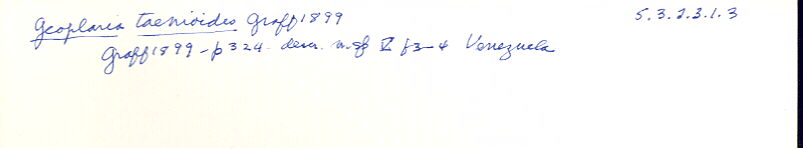 Geoplana taenioides Graff 1899 5.3.2.3.1.3
Graff 1899 - p 324 descr. n. sp. V f 3-4 Venezuela